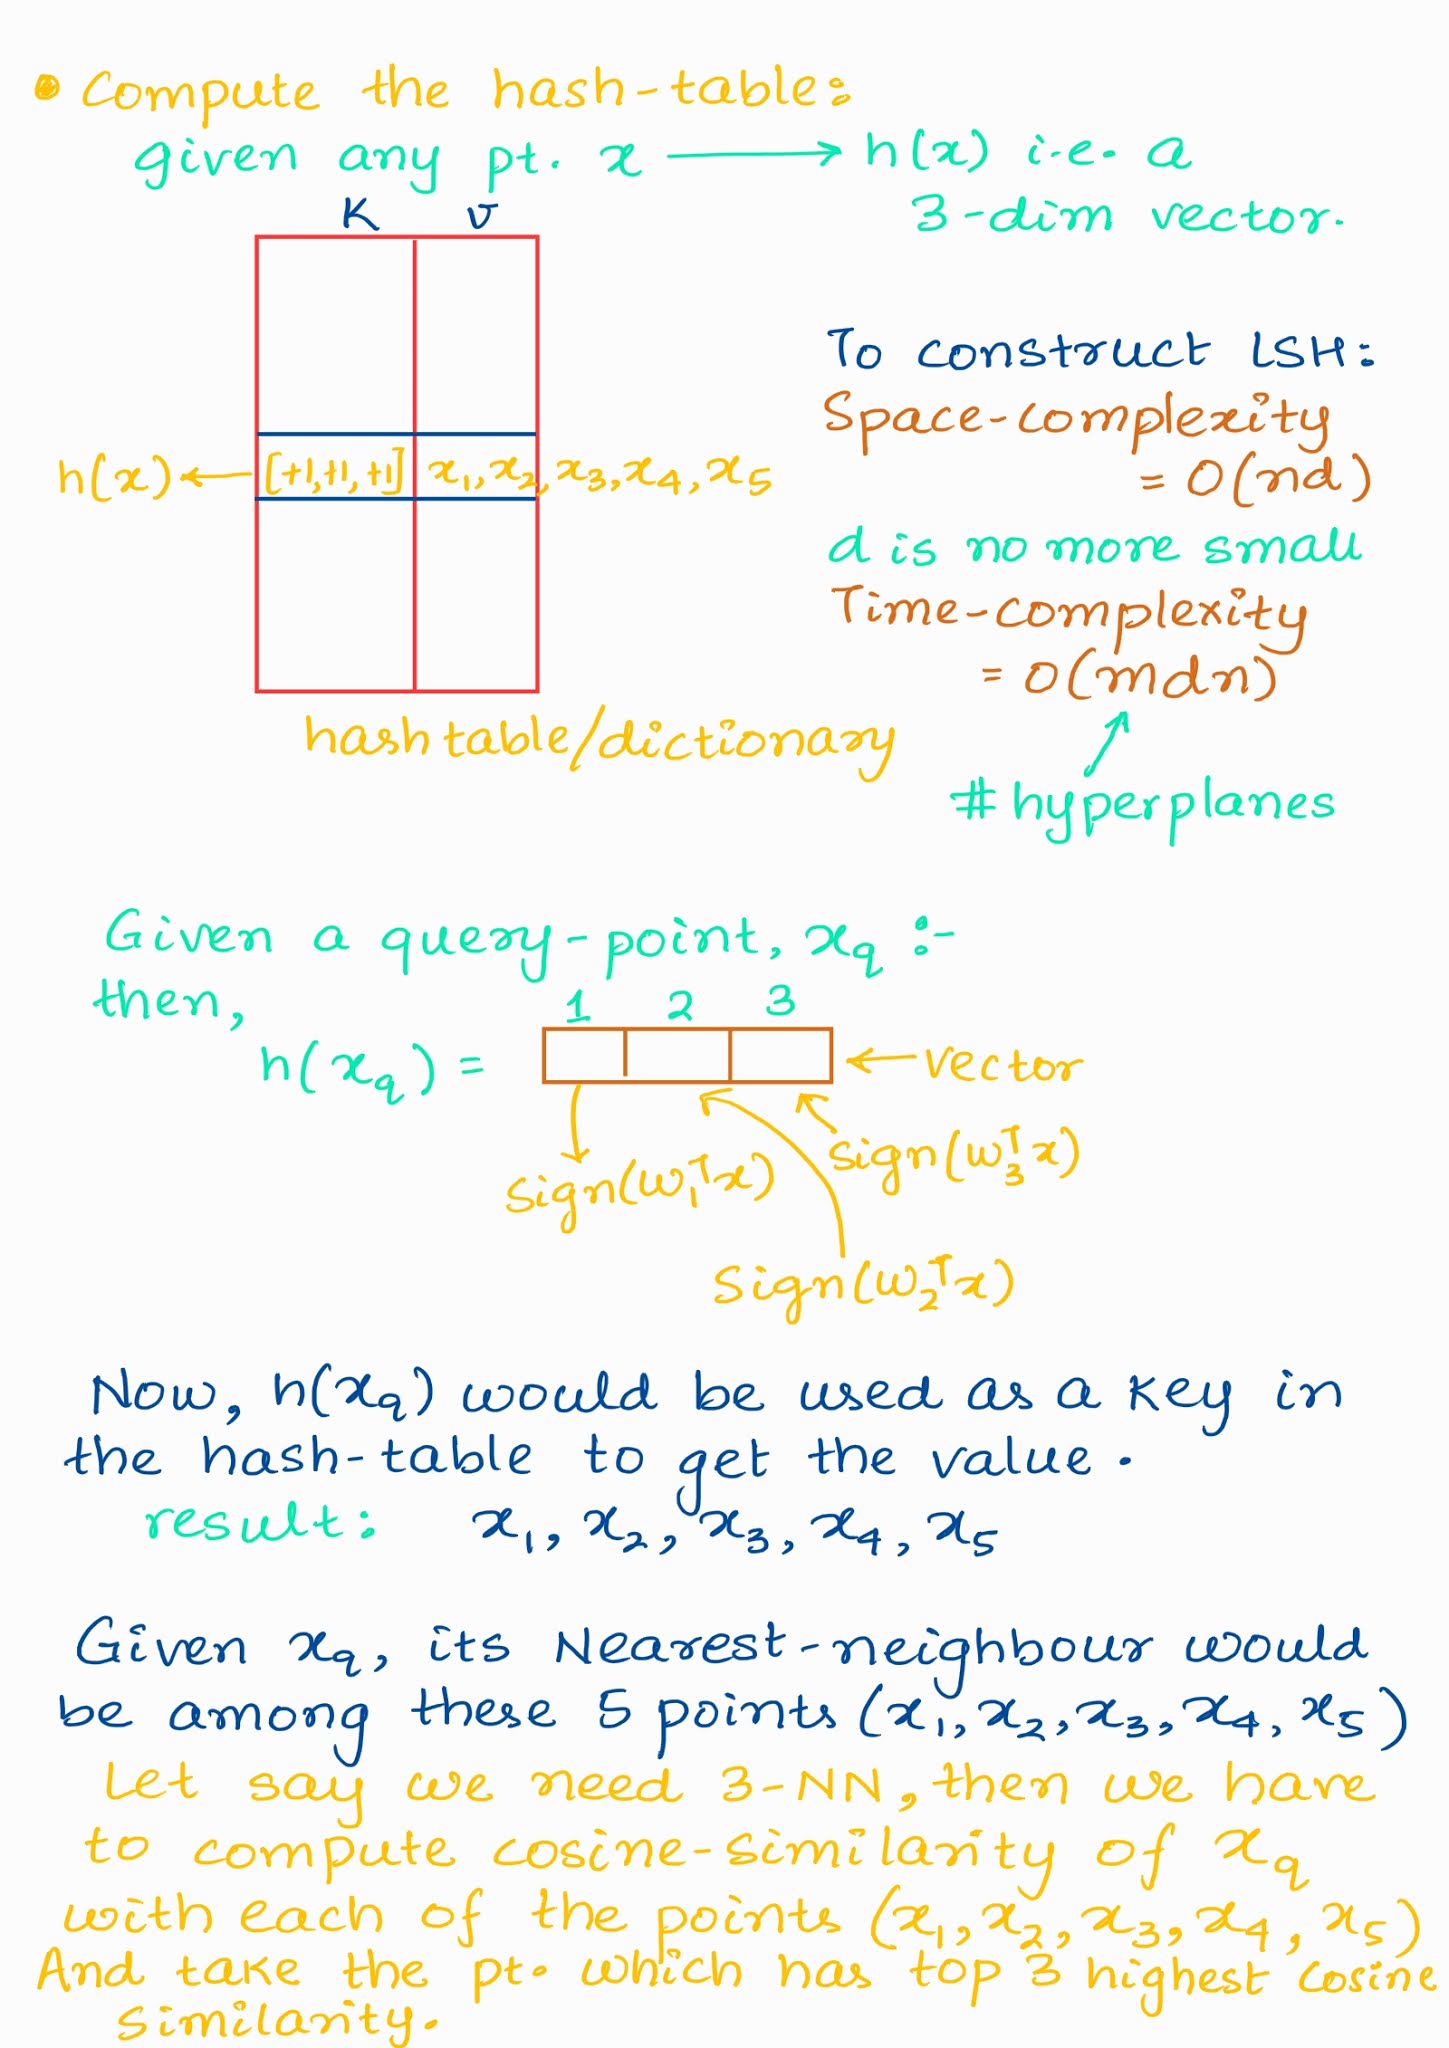 • Compute the hash-table:
given any pt. x ⟶ h(x) i.e. a
3-dim vector.
K v
h(x) ← [+1,+1,+1] x₁, x₂, x₃, x₄, x₅
hash table/dictionary
To construct LSH:
Space-complexity
= O(nd)
d is no more small
Time-complexity
= O(mdn)
# hyperplanes
Given a query-point, x_q :-
then,
1 2 3
h(x_q) =
← vector
Sign(w₁ᵀx)
Sign(w₃ᵀx)
Sign(w₂ᵀx)
Now, h(x_q) would be used as a key in
the hash-table to get the value.
result: x₁, x₂, x₃, x₄, x₅
Given x_q, its Nearest-neighbour would
be among these 5 points (x₁, x₂, x₃, x₄, x₅)
Let say we need 3-NN, then we have
to compute cosine-similarity of x_q
with each of the points (x₁, x₂, x₃, x₄, x₅)
And take the pt. which has top 3 highest cosine
similarity.